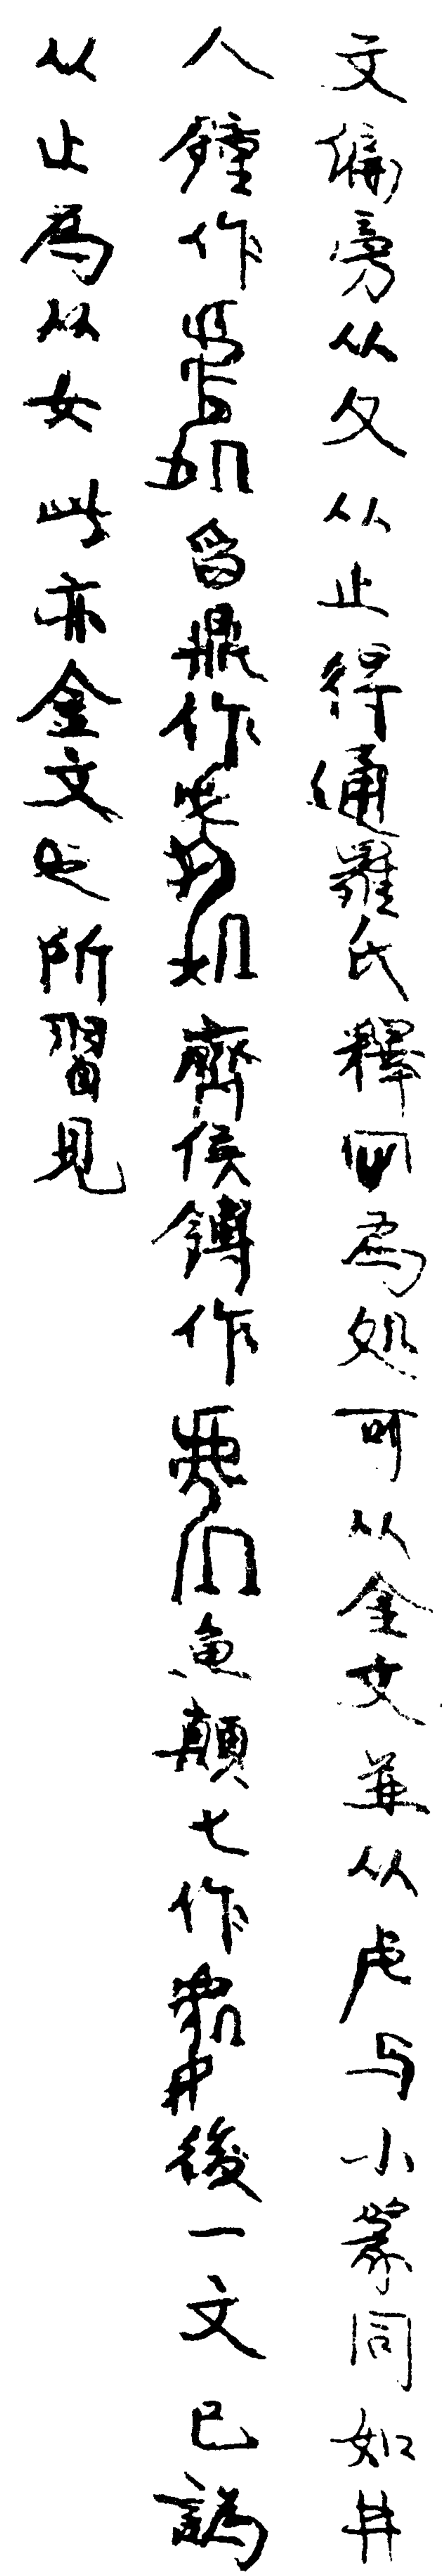 文偏旁从夊从止得通羅氏釋為処可从金文並从虍与小篆同如井
人鐘作舀鼎作齊侯鎛作魚顛匕作後一文已譌
从止為从女此亦金文之所習見